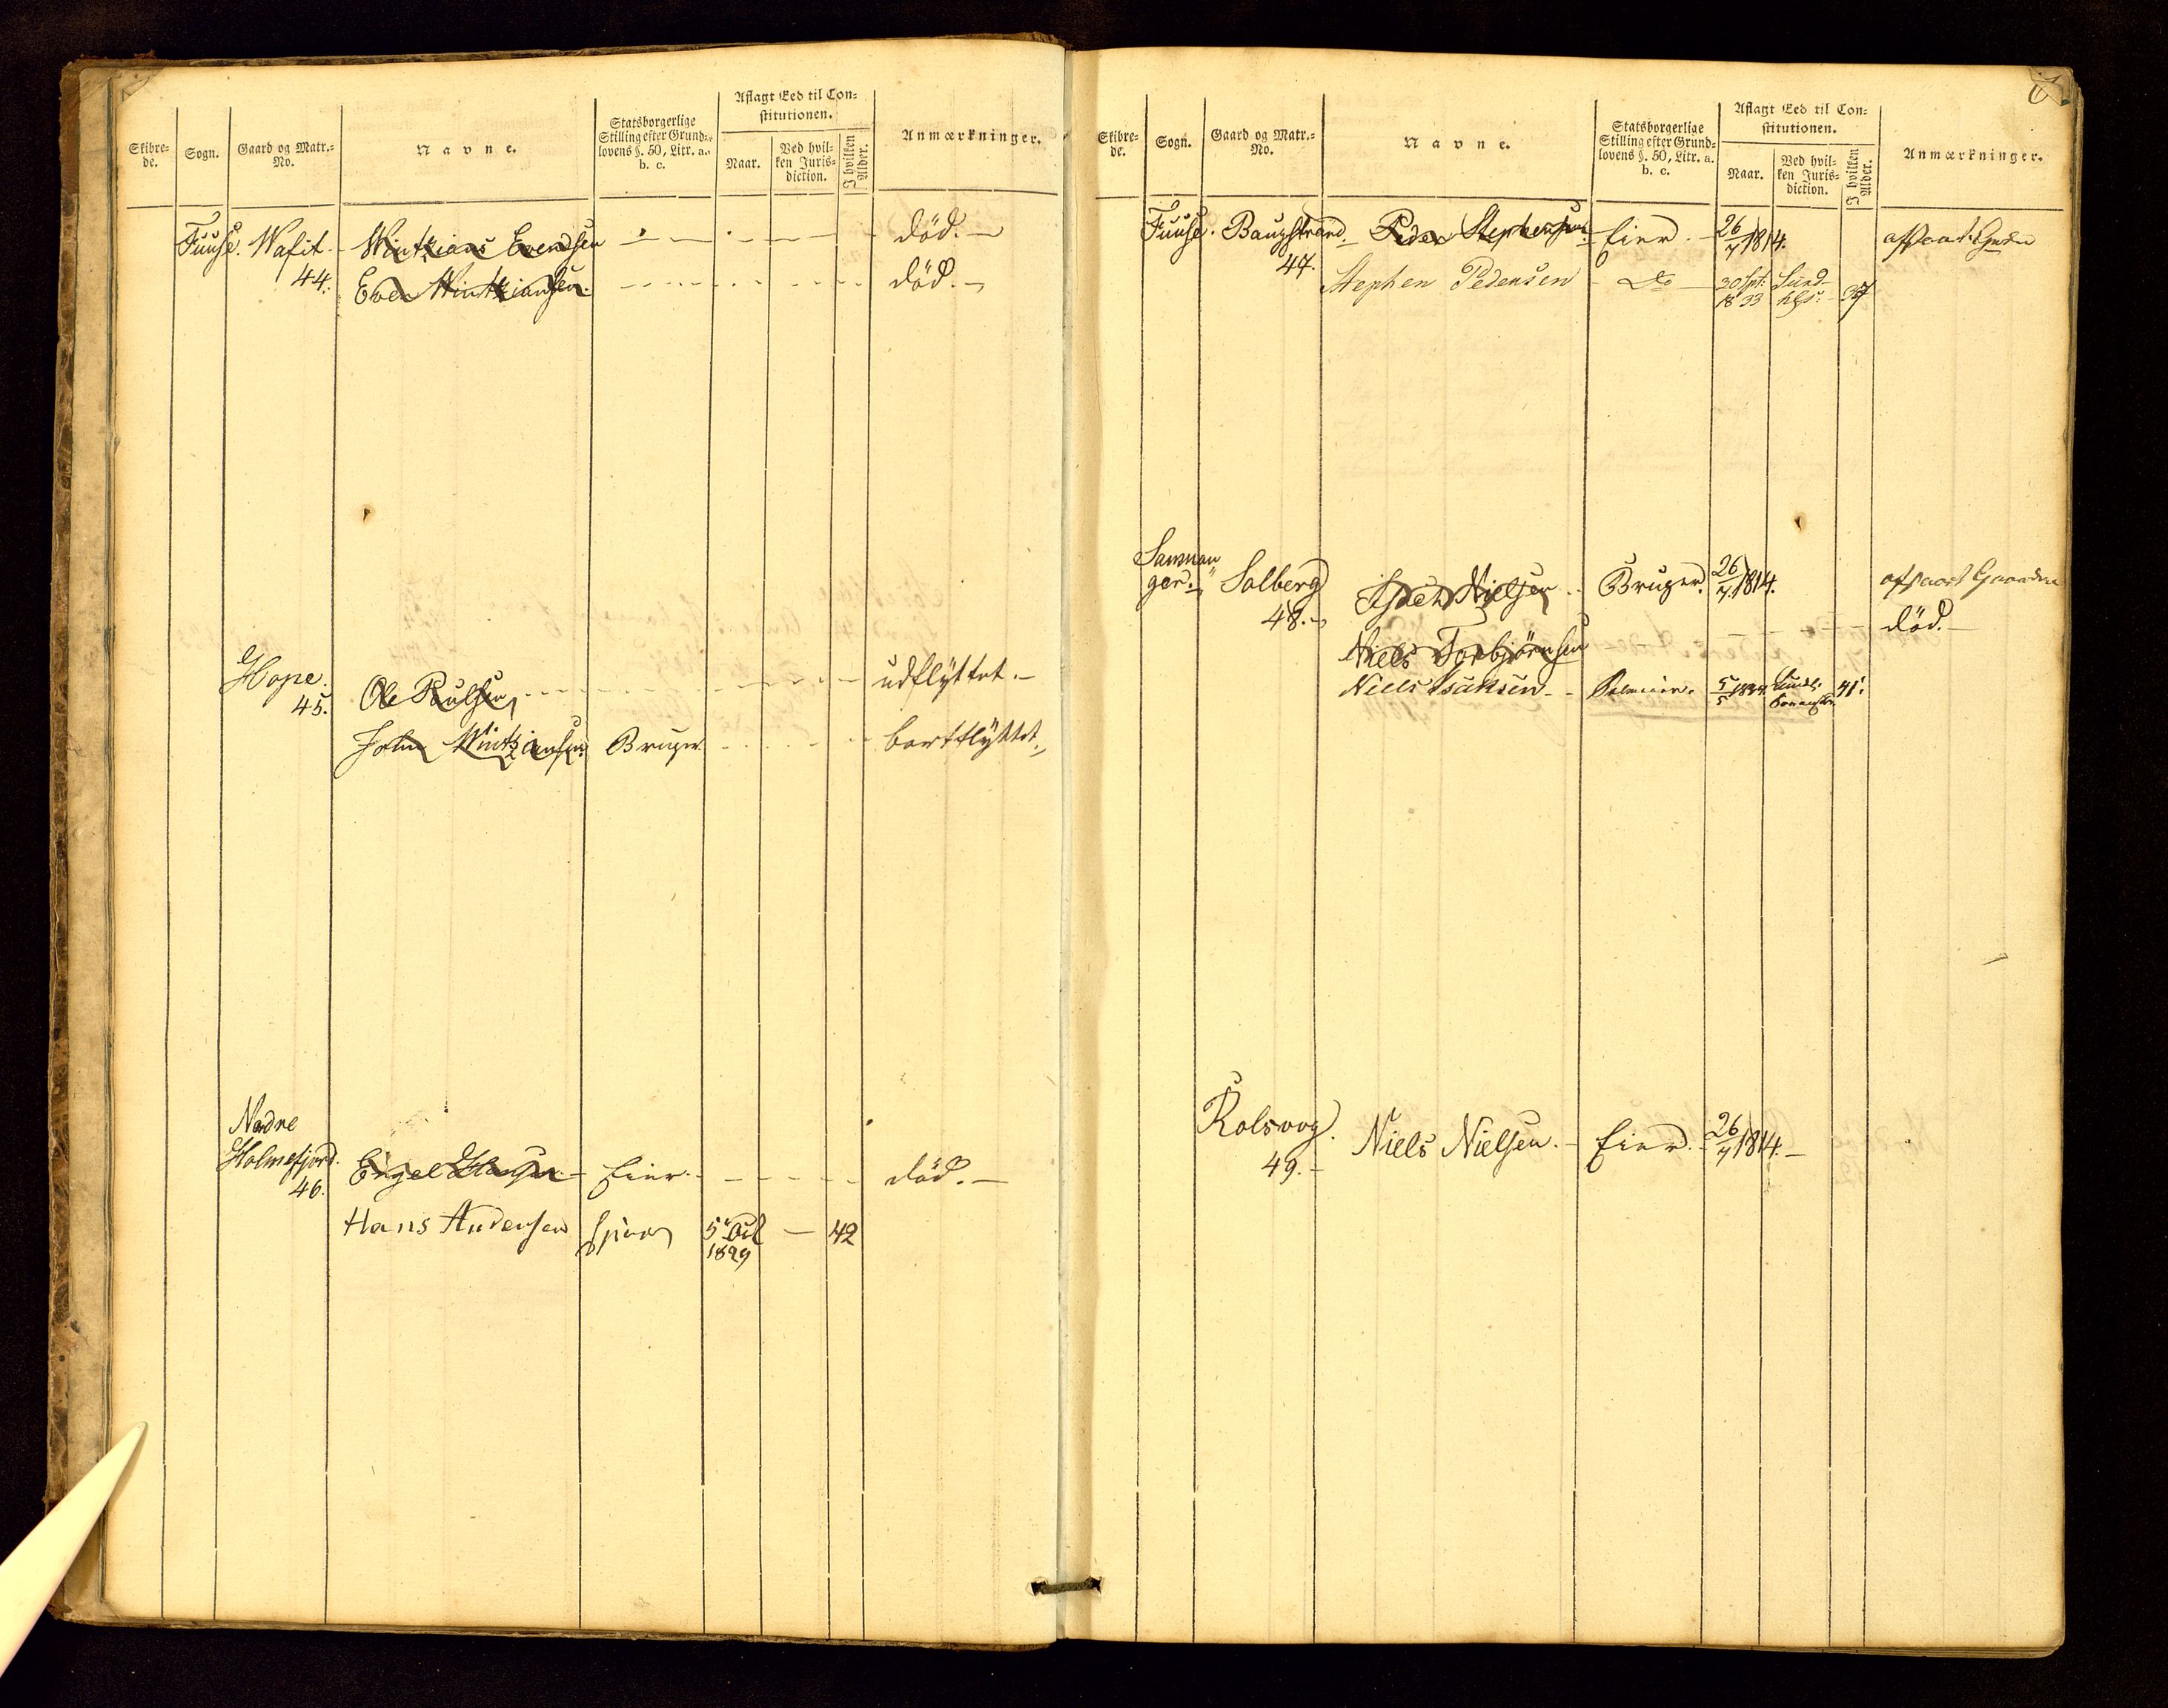 Skibre-
de.
Sogn.
Gaard og Matr.-
No.
Navne.
Statsborgerlige
Stilling efter Grund-
lovens §. 50, Litr. a.
b. c.
Aflagt Eed til Con-
stitutionen.
Naar.
Ved hvil-
ken Juris-
diction.
I hvilken
Alder.
Anmærkninger.
Fuuse. Wafit. Wintzians Evendsen død.
44. Even Wintziansen død.
Hope.
45. Ole Poulsen udflyttet.
John Wintziansen Bruger bortflyttet.
Nedre
Holmefjord.
46. Engel Hansen Eier død.
Hans Andersen 5 Oct 42
1829
Skibre-
de.
Sogn.
Gaard og Matr.-
No.
Navne.
Statsborgerlige
Stilling efter Grund-
lovens §. 50, Litr. a.
b. c.
Aflagt Eed til Con-
stitutionen.
Naar.
Ved hvil-
ken Juris-
diction.
I hvilken
Alder.
Anmærkninger.
Fuuse. Baugstrand. Peder Stephensen Eier. 26/7 1814.
47.
Stephen Pedersen Do 30 Spt. Sund- 37
1833
Samnan
ger. Solberg Nielsen Bruger. 26/7 1814. afstaaet Gaarden
48. Niels Torbjørnsen død.
Niels Isaksen 41.
Rolsvog. Niels Nielsen. Eier. 26/7 1814.
49.